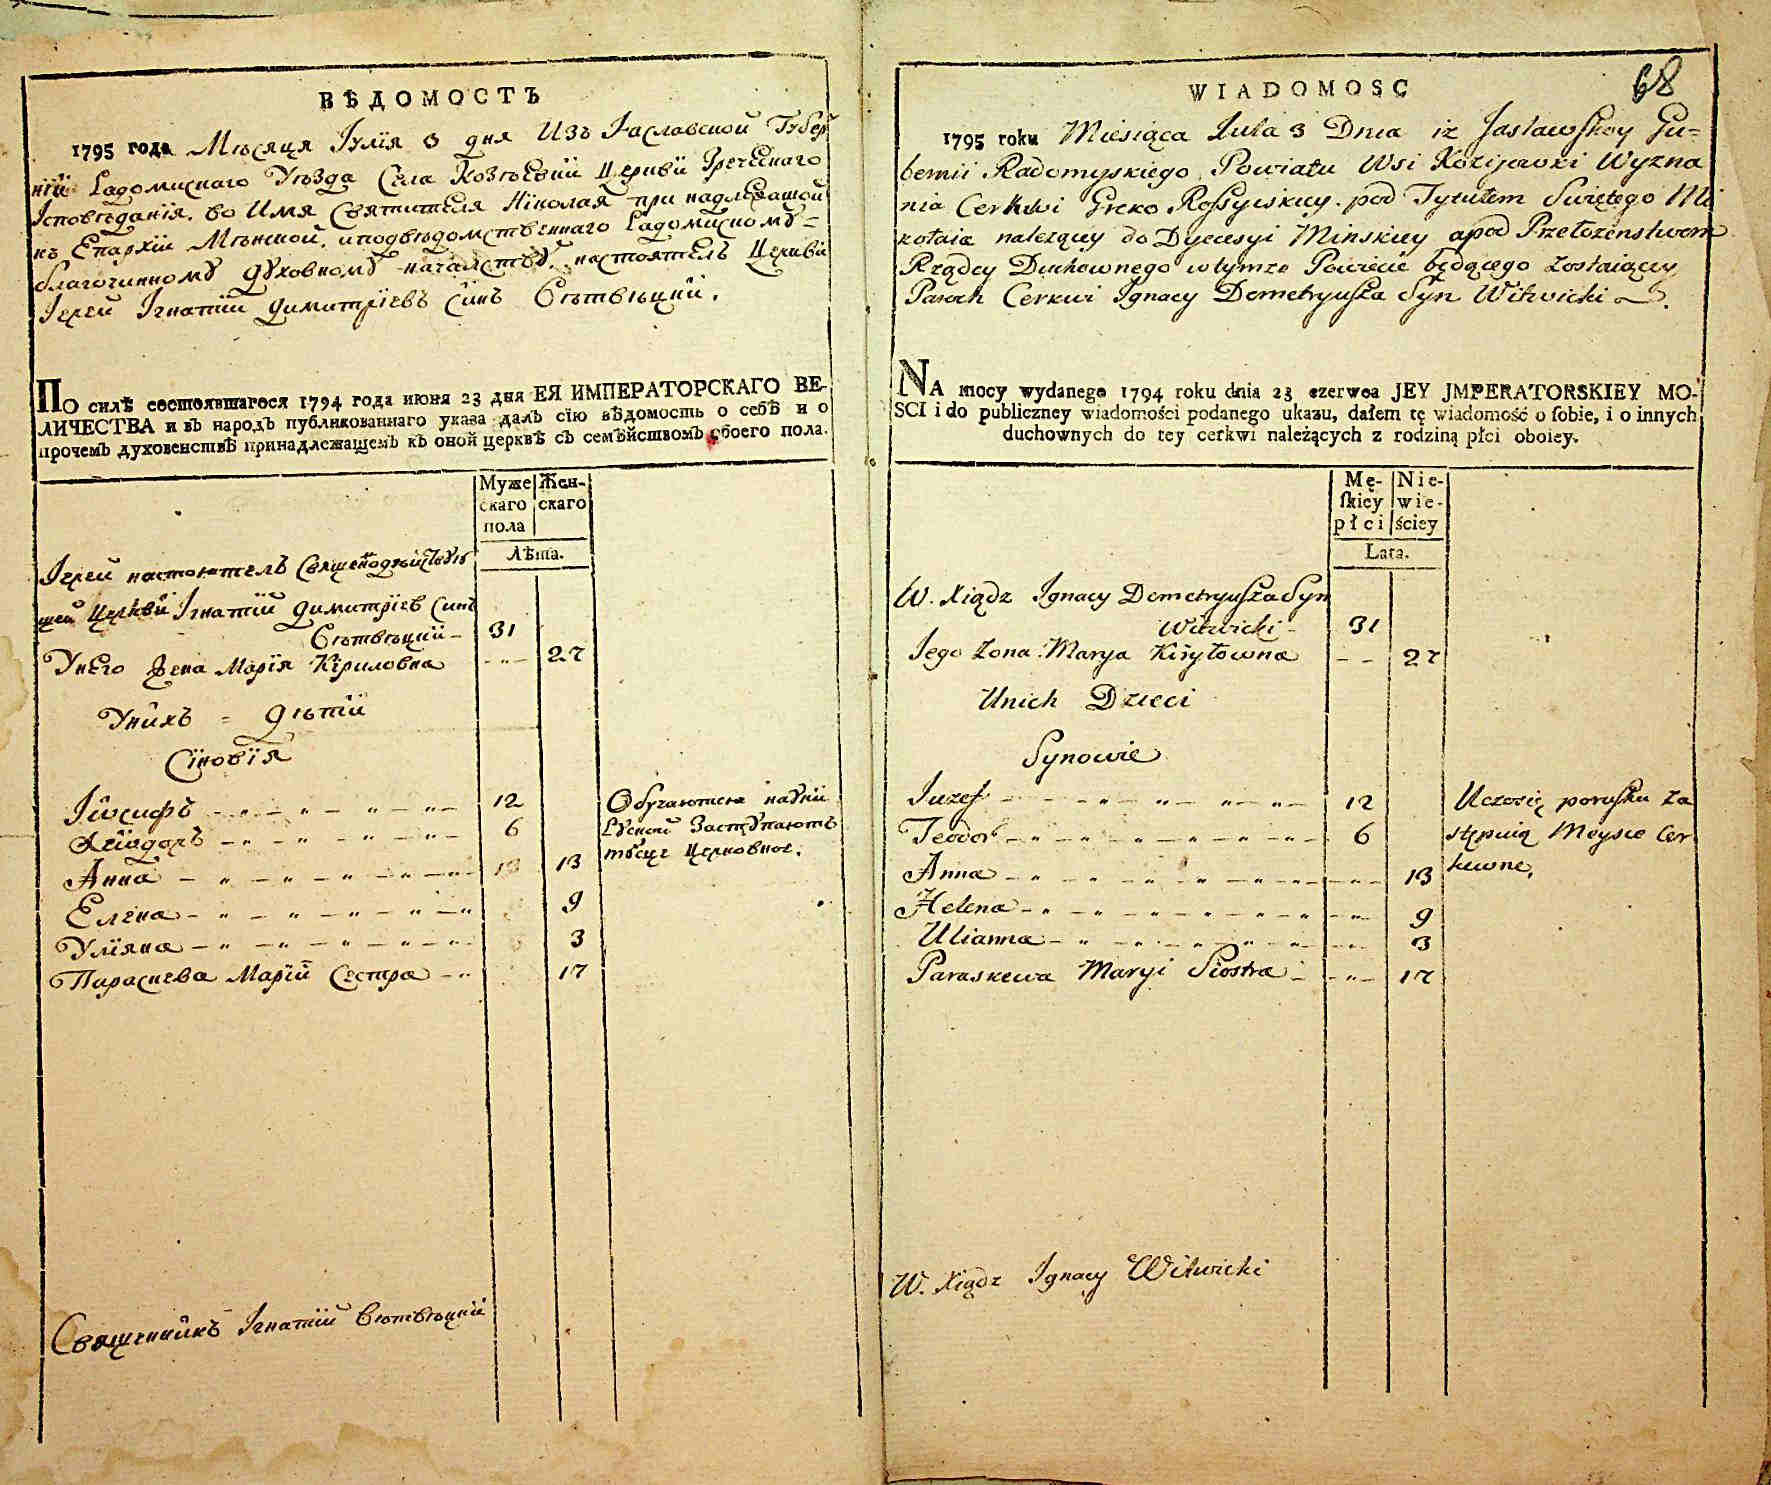 ВѢДОМОСТЬ
1795 года Мѣсяця Іулїя 3 дня Изъ Iаславской Губер
нїй Радомисꙋаго Уѣзда Села Козѣевки Церкви Греческаго
Ісповѣданія. во Имя Святителя Нїколая при надлежащой
къ Епархїи Мѣнской. и подвѣдомственнаго Радомискому-
благочинному духовному началству настоятель Церкви
Іерей Ігнатїй Димитрїевъ Сїнъ Вѣтвѣцкїй.
ПО силѣ состоявшагося 1794 года июня 23 дня ЕЯ ИМПЕРАТОРСКАГО ВЕ-
ЛИЧЕСТВА и въ народъ публикованнаго указа далъ сїю вѣдомость о себѣ и о
прочемъ духовенствѣ принадлежащемъ къ оной церквѣ съ семѣйствомъ обоего пола.
Муже Жен-
скаго скаго
пола
Лѣта.
Іерей настоятель
щей Церкви Ігнатїй Димитрїев Синъ
Вѣтвѣцкїй - 31
Унего Жена Марїя Кїриловна - " - 27
Унихъ = Дѣтй
Сїновїя
Іѡсифъ - " - " - " - " - 12 Обучаютися науки
Ѳеѡдоръ - " - " - " - " - 6 Руской Заступають
Анна - " - " - " - " - 13 тѣсце Церковное.
Елена - " - " - " - " 9
Улїяна - " - " - " - " 3
Параскева Марїй Сестра - " 17
Священникъ Ігнатїй Вѣтвѣцкїй
68
WIADOMOSC
1795 roku Miesiąca Jula 3 Dnia iz Jasławskoy Gu=
bernii Radomyskiego Powiatu Wsi Koziiewki Wyzna
nia Cerkwi Greko Rossyiskiey. pod Tytułem Swiętego Mi
kołaia nalezącey do Dyecesyi Minskiey apod Przełozenstwom
Rządcy Duchownego wtymze Powiecie będącego zostaiący
Paroch Cerkwi Ignacy Demetryusza Syn Witwicki
NA mocy wydanego 1794 roku dnia 23 czerwca JEY JMPERATORSKIEY MO-
SCI i do publiczney wiadomości podanego ukazu, dałem tę wiadomość o sobie, i o innych
duchownych do tey cerkwi należących z rodziną płci oboiey.
Mę- Nie-
skiey wie-
płci ściey
Lata.
W. Xiądz Ignacy Demetryusza Syn
Witwicki - 31
Jego Zona Marya Kiryłowna - - 27
Unich Dzieci
Synowie
Juzef - " - " - " - 12 Uczosię porusku za
Teodor - " - " - " - 6 stępuią Meysce Cer
Anna - " - " - " - 13 kiewne.
Helena - " - " - " - 9
Ulianna - " - " - " - 3
Paraskewa Maryi Siostra - " - 17
W. Xiądz Ignacy Witwicki